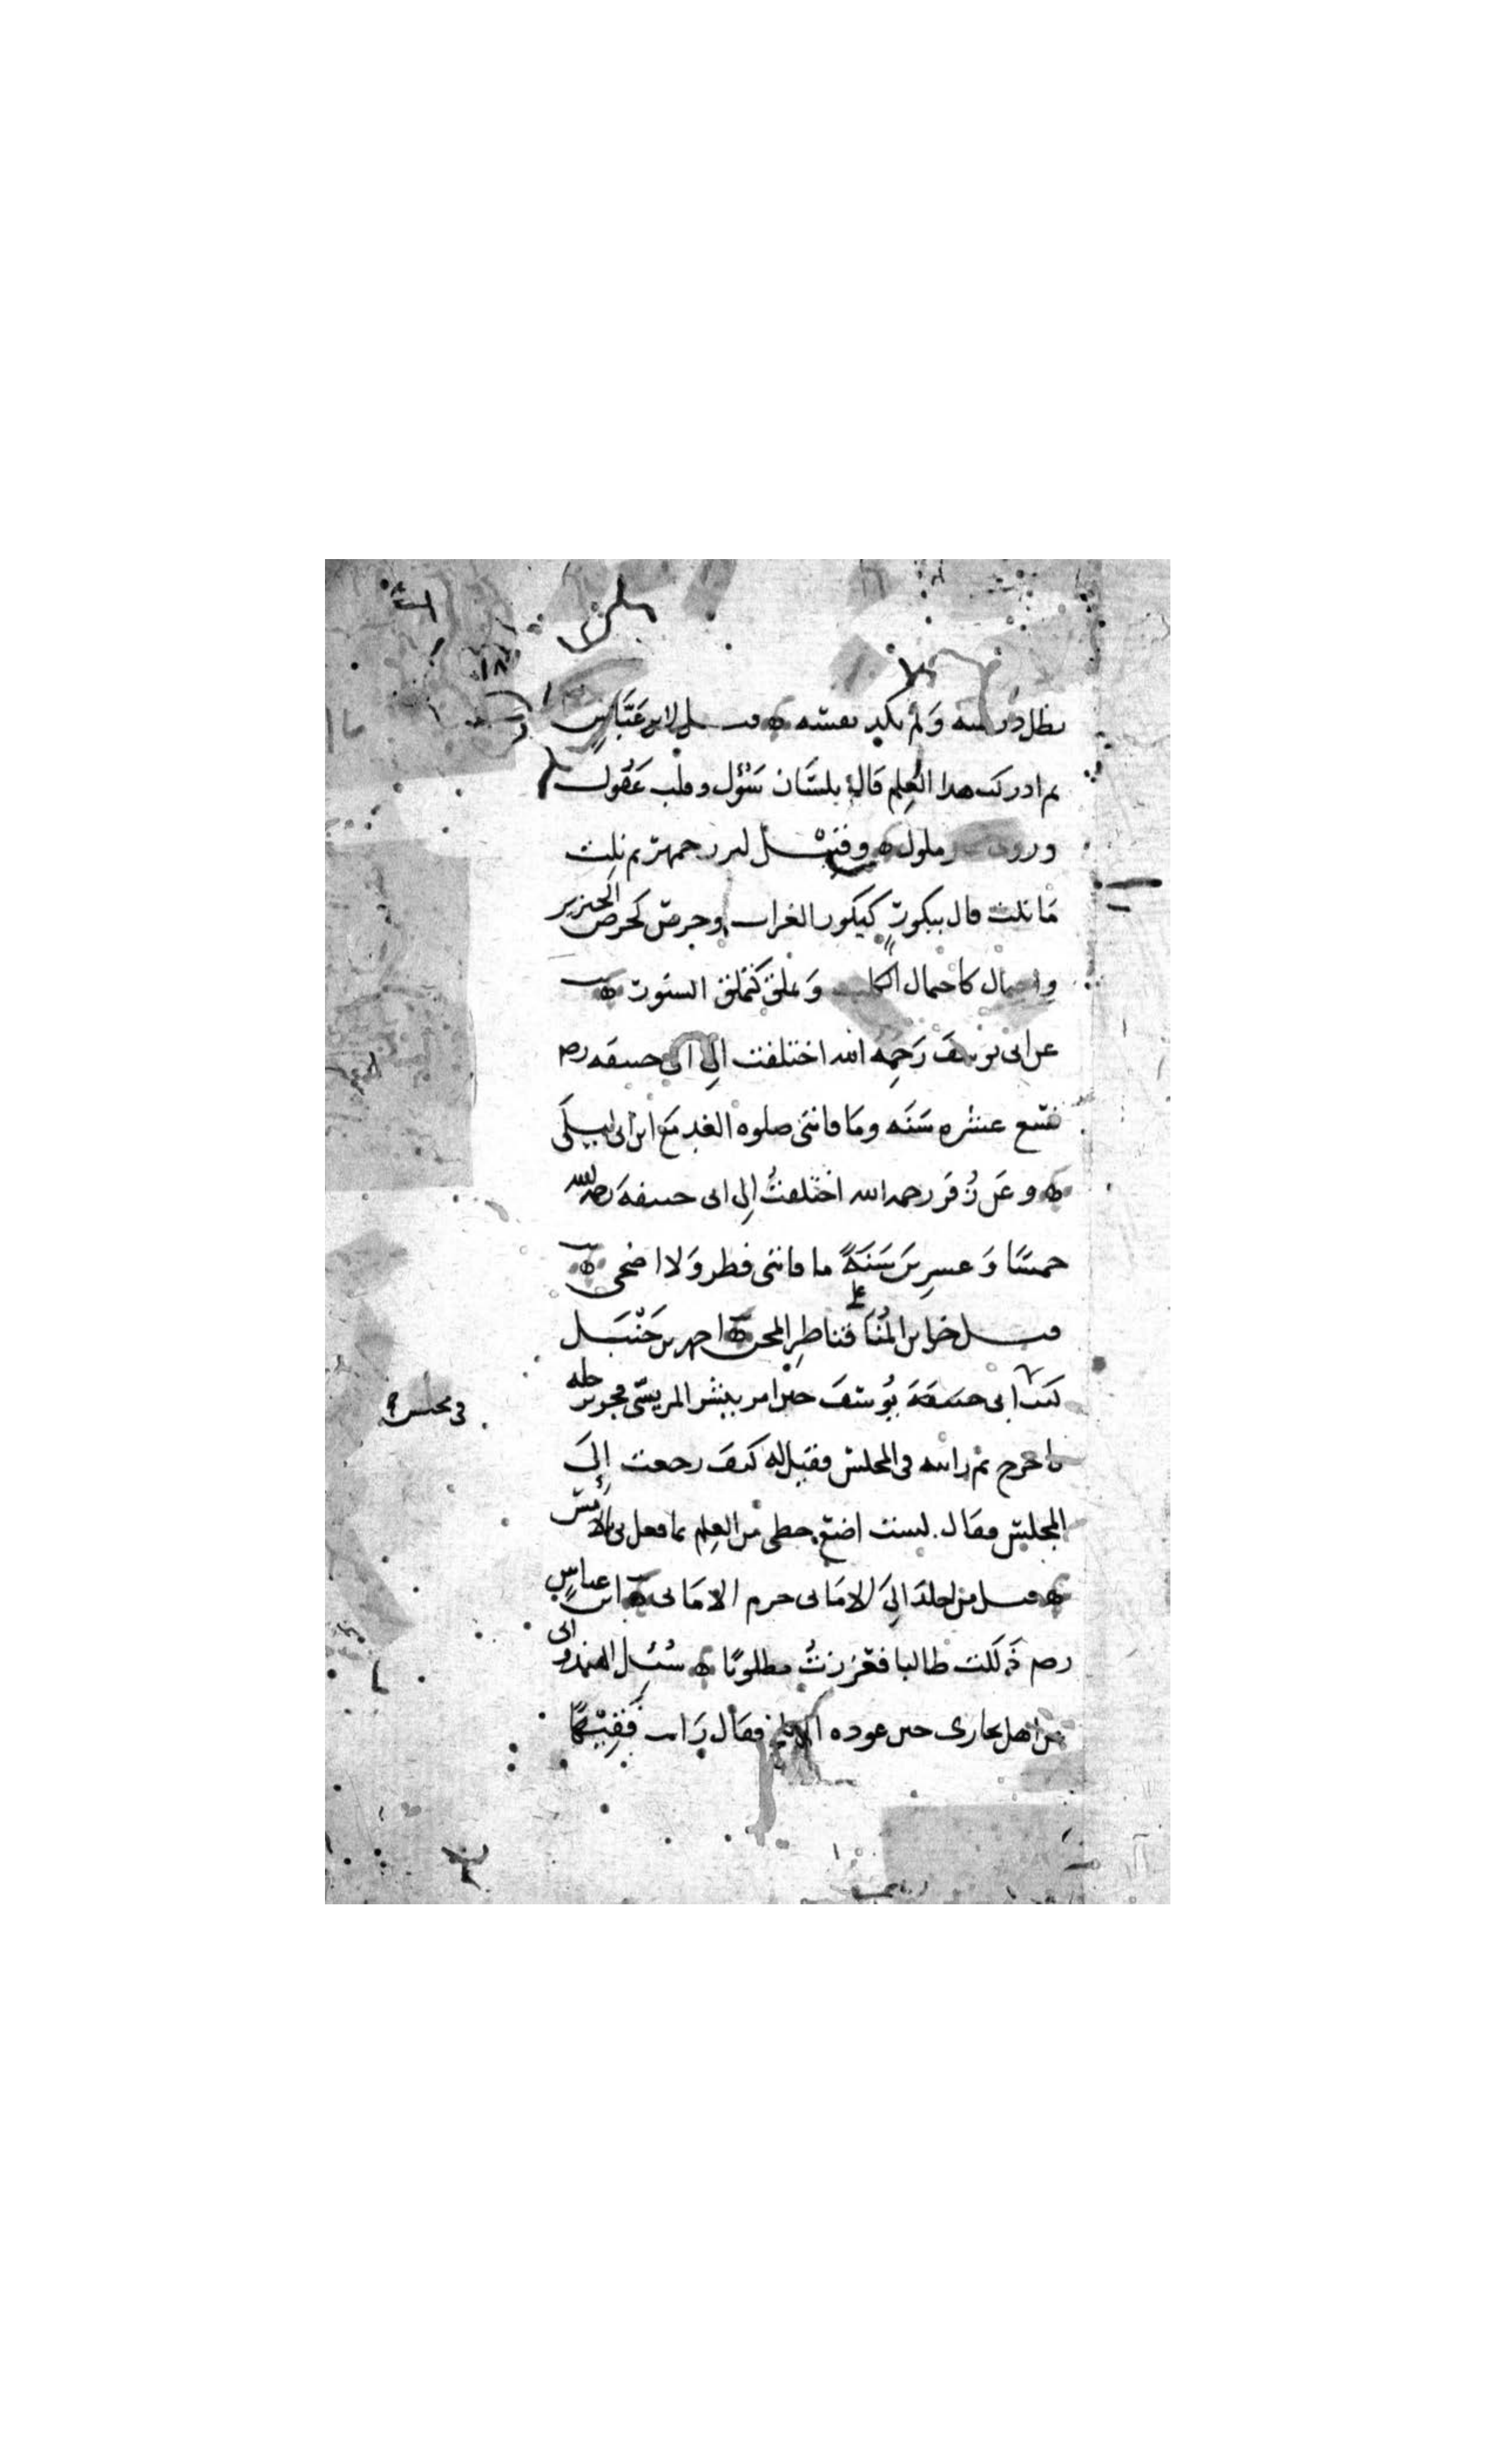 ١٨
بطل درسه وَلم يكد نفسه ه قيل لابن عَبَّاسٍ
بم ادركت هذا العِلم قَال بلسَان سَؤل وقلب عَقول
ملول ه وقيل لبزرجمهر بم نلت
مَا نلت قال ببكورٍ كبكور الغراب وحرص كحرص الخنزير
كاحتمال الكلب وَتملق كتملق السنور ه
عن ابى يوسف رَحِمَه الله اختلفت الِى ابى حنيفه رحم
تسع عشره سَنَه ومَا فاتنى صلوه الغد مَع ابن ابى ليلَى
ه وعَن زُفَر رحمه الله اختلفتُ اِلى ابى حنيفهَ رحمه الله
خمسًا وَعشرِين سَنَةً ما فاتنى فطر وَلا اضحى ه
قيل خزاين المُنَا على قناطِر المحن ه احمد بن حَنْبَل
ابى حنيفهَ يُوسفَ حين امر ببشر المريسى فجر برجله
فى مجلس
فاخرج ثم رايته فى المجلس فقيل له كيفَ رجعت اِلَى
المجلس فقَال لست اضيّع حظى من العِلم بما فعل بى بالامس
ه قيل من اخلدَ اِلَى الامَانى حرم الامَانى ه ابن عباسٍ
رحم ذَلَلت طالبا فعززتُ مطلوبًا ه سُئِل الهندوانى
من اهل بخارى حين فقَال رَايت فَقِيْهًا